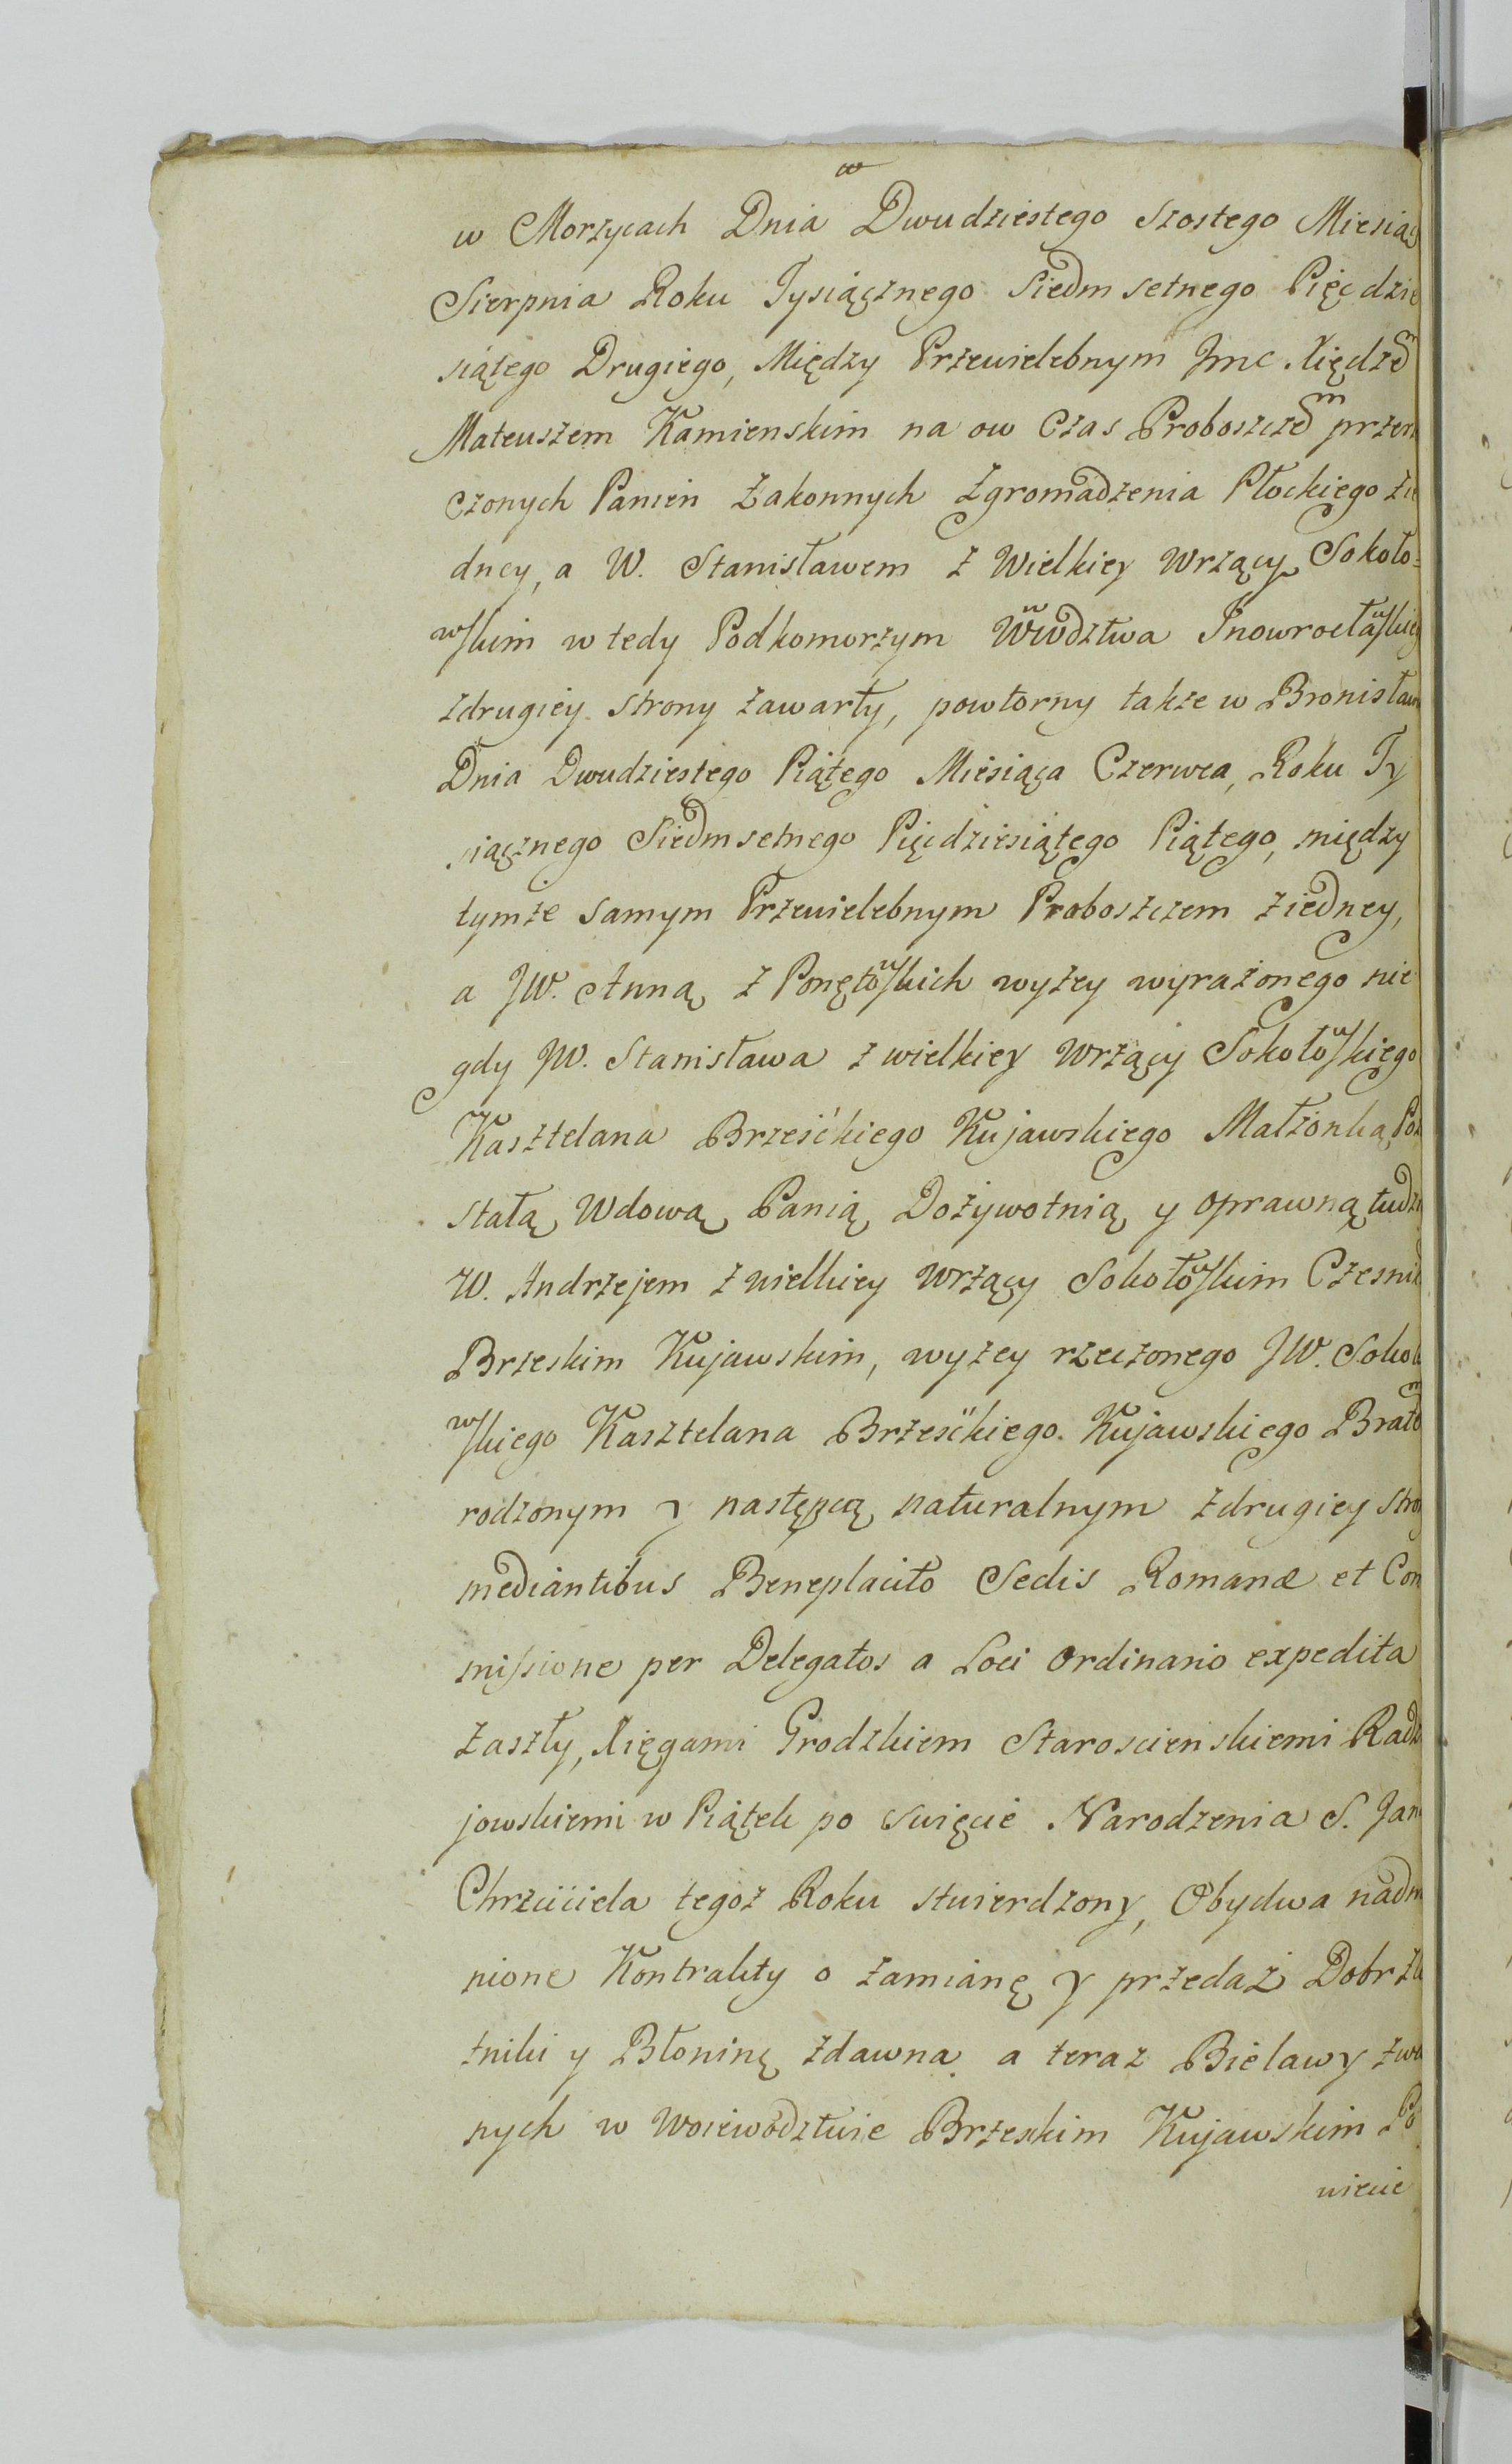 w
w Morzycach Dnia Dwudziestego Szostego Miesiąc
Sierpnia Roku Tysiącznego Siedmsetnego Pięcdzie
siątego Drugiego, Między Przewielebnym Jmc Xiędzem
Mateuszem Kamienskim na ow Czas Proboszczem przerze
czonych Panien Zakonnych Zgromadzenia Płockiego zie
dney, a W. Stanisławem z Wielkiey Wrzący Sokoło=
wskim w tedy Podkomorzym Wwdztwa Jnowrocławskieg
zdrugiey strony zawarty, powtorny także w Bronisław
Dnia Dwudziestego Piątego Miesiąca Czerwca, Roku Ty
siącznego Siedmsetnego Pięcdziesiątego Piątego, między
tymże samym Przewielebnym Proboszczem ziedney,
a JW. Anną z Ponętowskich wyżey wyrażonego nie
gdy JW. Stanisława z wielkiey Wrzący Sokołowskiego
Kasztelana Brześćkiego Kujawskiego Małżonką Poz
stałą Wdową Panią Dożywotnią y oprawną tudzi
W. Andrzejem z wielkiey Wrzący Sokołowskim Czesnik
Brzeskim Kujawskim, wyżey rzeczonego JW. Sokoło
wskiego Kasztelana Brześćkiego Kujawskiego Bratem
rodzonym y następcą naturalnym zdrugiey stro
mediantibus Beneplacito Sedis Romanæ et Com
missione per Delegatos a Loci Ordinario expedita
zaszły, Xięgami Grodzkiem Staroscienskiemi Radz
jowskiemi w Piątek po Swięcie Narodzenia S. Jan
Chrzciciela tegoż Roku stwierdzony, Obydwa nadm
nione Kontrakty o zamianę y przedaż Dobr Zł
tniki y Błoninę zdawna a teraz Bielawy zwa
nych w Woiewodztwie Brzeskim Kujawskim Po
wiecie